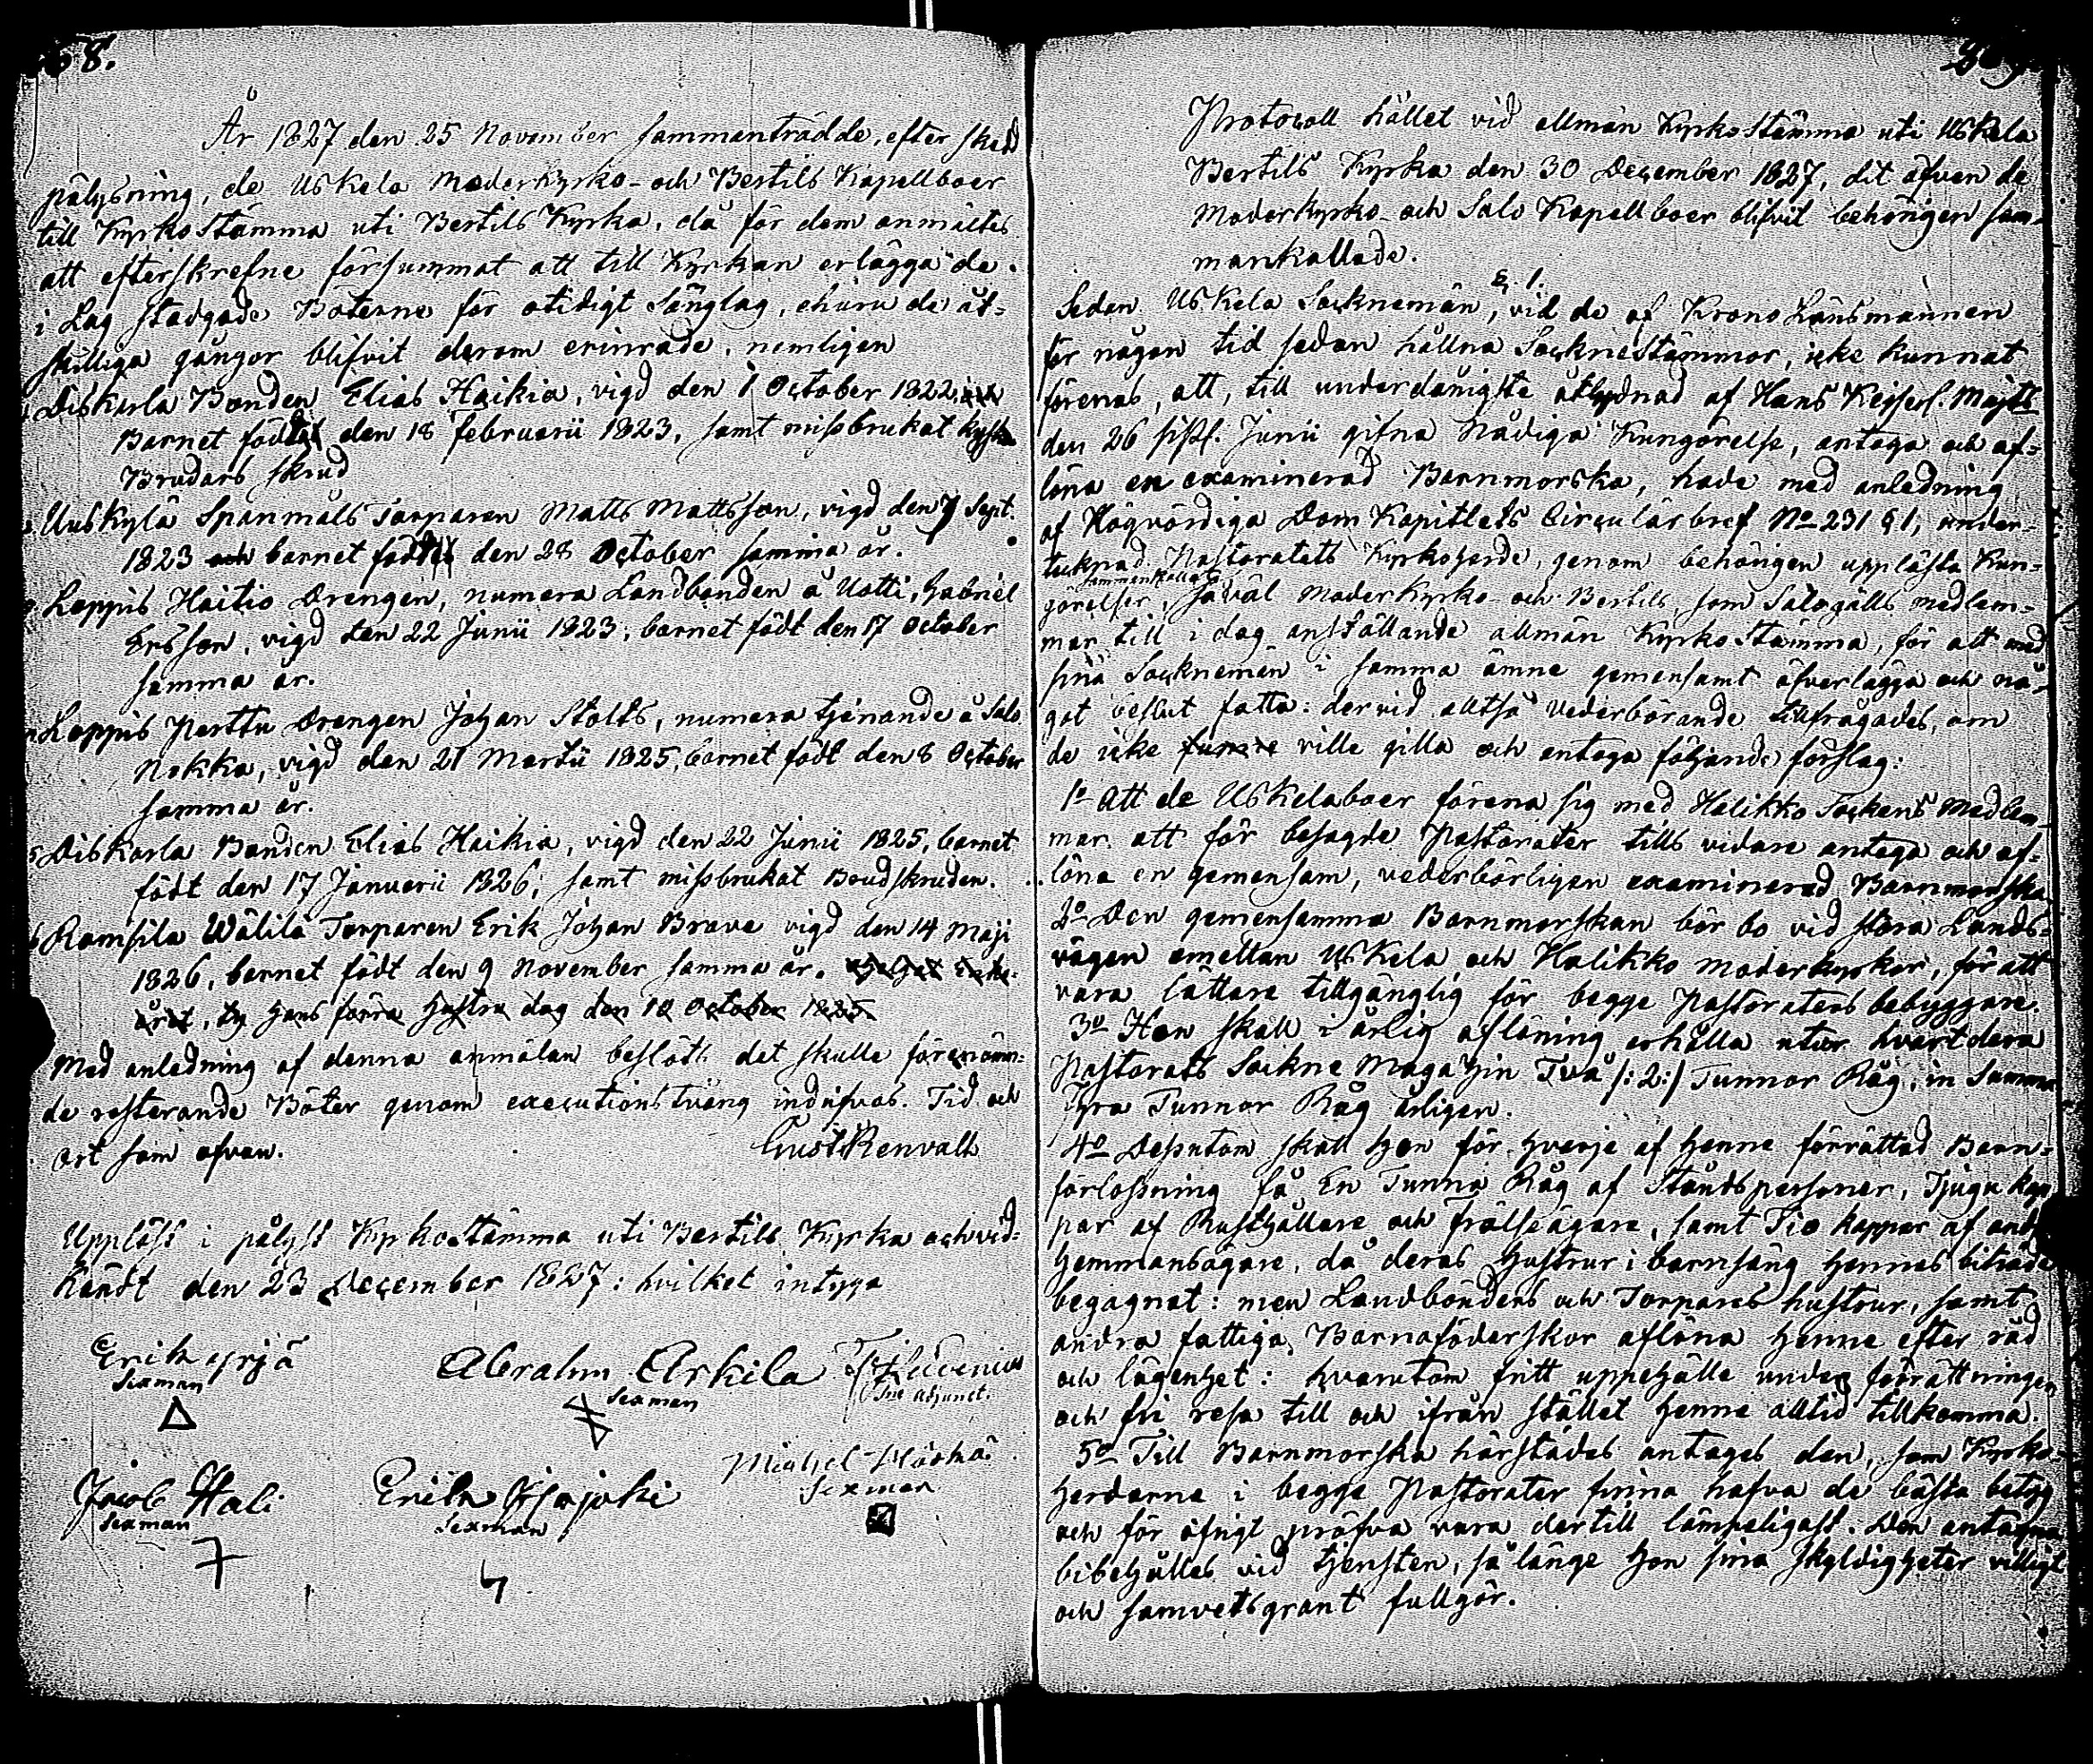 68.
År 1827 den 25 November sammanträdde, efter skedd
pålysning, de Uskela Moderkyrko- och Bertils Kapellboer
till KyrkoStämma uti Bertils Kyrka, då för dem anmältes
att efterskrefne försummat att till Kyrkan erlägga de
i Lag stadgade Böterne för otidigt Sänglag, ehuru de åt-
skilliga gångor blifvit derom erinrade, nemligen
Diskarla Bonden Elias Haikia, vigd den 1 October 1822,
Barnet födt den 18 Februarii 1823, samt missbrukat kyska
Brudars skrud
Uuskylä Spanmåls Torparen Matts Mattsson, vigd den 7 Sept.
1823 och barnet födt den 28 October samma år.
Loppis Haitio Drengen, numera Landbonden å Uotti, Gabriel
Ersson, vigd den 22 Junii 1823; barnet födt den 17 October
samma år.
Loppis Perttu Drengen Johan Stolts, numera tjenande å Salo
Nokka, vigd den 21 Martii 1825, barnet födt den 8 October
samma år.
5 Diskarla Bonden Elias Haikia, vigd den 22 Junii 1825, barnet
födt den 17 Januarii 1826; samt missbrukat Brudskruden.
6 Ramsila Wälilä Torparen Erik Johan Brave vigd den 14 Maji
1826, barnet födt den 9 November samma år.
året, ty hans förra hustru dog den 10 October 1825
Med anledning af denna anmälan beslöts det skulle förenämn-
de resterande Böter genom executionstvång indrifvas. Tid och
ort som ofvan.
Gust Renvall
Uppläst i pålyst Kyrkostämma uti Bertils Kyrka och vid-
kändt den 23 December 1827: hvilket intyga
Erik Yrjä
Sexman
Abrahm Arkila
Sexman
Adjunct.
Michel
Sexman
Jacob Hali
Sexman
Erik
Sexman
Protocoll hållet vid allmän KyrkoStämma uti Uskela
Bertils Kyrka den 30 December 1827, dit äfven de
Moderkyrko- och Salo Kapellboer blifvit behörigen sam-
mankallade.
§ 1.
Sedan Uskela Socknemän, vid de af Krono Länsmannen
för någon tid sedan hållna SockneStämmor, icke kunnat
förenas, att, till underdånigste åtlydnad af Hans Keijserl. Majts
den 26 sistl. Junii gifna Nådiga Kungörelse, antaga och af-
löna en examinerad Barnmorska, hade med anledning
af Högvördiga Dom Kapitlets Circulärbref No 231 § 1, under-
tecknad Pastoratets Kyrkoherde, genom behörigen upplästa Kun-
sammankallat
görelser, såväl Moderkyrko- och Bertils, som Salogälls medlem-
mar till i dag anställande allmän KyrkoStämma, för att med
sina Socknemän i samma ämne gemensamt öfverlägga och nå-
got beslut fatta: dervid alltså vederbörande tillfrågades, om
de icke ville gilla och antaga följande förslag:
1o Att de Uskelaboer förena sig med Halikko Sockens Medlem-
mar att för besagde Pastorater tills vidare antaga och af-
löna en gemensam, vederbörligen examinerad Barnmorska
2o Den gemensamma Barnmorskan bör bo vid stora Lands-
vägen emellan Uskela och Halikko moderkyrkor, för att
vara lättare tillgänglig för begge Pastoratens bebyggare.
3o Hon skall i årlig aflöning erhålla utur hvartdera
Pastorats Sockne Magazin Två /: 2:/ Tunnor Råg, in Summa
Fyra Tunnor Råg årligen.
4o Dessutom skall hon för hvarje af henne förrättad Barn-
förlossning få En Tunna Råg af Ståndspersoner, Tjugu kap-
par af Rusthållare och Frälseägare, samt Tio kappar af andra
hemmansägare, då deras hustrur i barnsäng hennes biträde
begagnat: men Landbönders och Torpares hustrur, samt
andra fattiga Barnaföderskor aflöna henne efter råd
och lägenhet: hvarutom fritt uppehälle under förrättningen
och fri resa till och ifrån stället henne alltid tillkomma.
5o Till Barnmorska härstädes antages den, som Kyrko-
herdarne i begge Pastorater finna hafva de bästa betyg
och för öfrigt pröfva vara dertill lämpeligast. Den antagna
bibehålles vid tjensten, så länge hon sina skyldigheter villigt
och samvetsgrant fullgör.